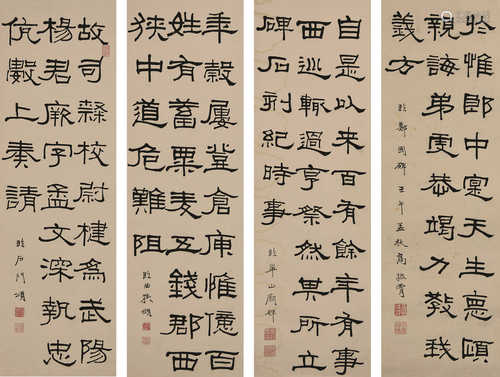 於惟郎中寔天生德
親誨弟虔恭竭力教我
義方
臨鄭固碑 壬午孟秋高振霄
自是以來百有餘年有事
西巡輒過亨祭然其所立
碑石刻紀時事
臨華山廟碑
年穀屢登倉庾惟億百
姓有蓄粟麦五錢郡西
狹中道危難阻
臨西狹頌
故司隸校尉楗為武陽
楊君厥字孟文深執忠
伉數上奏請
臨石門頌